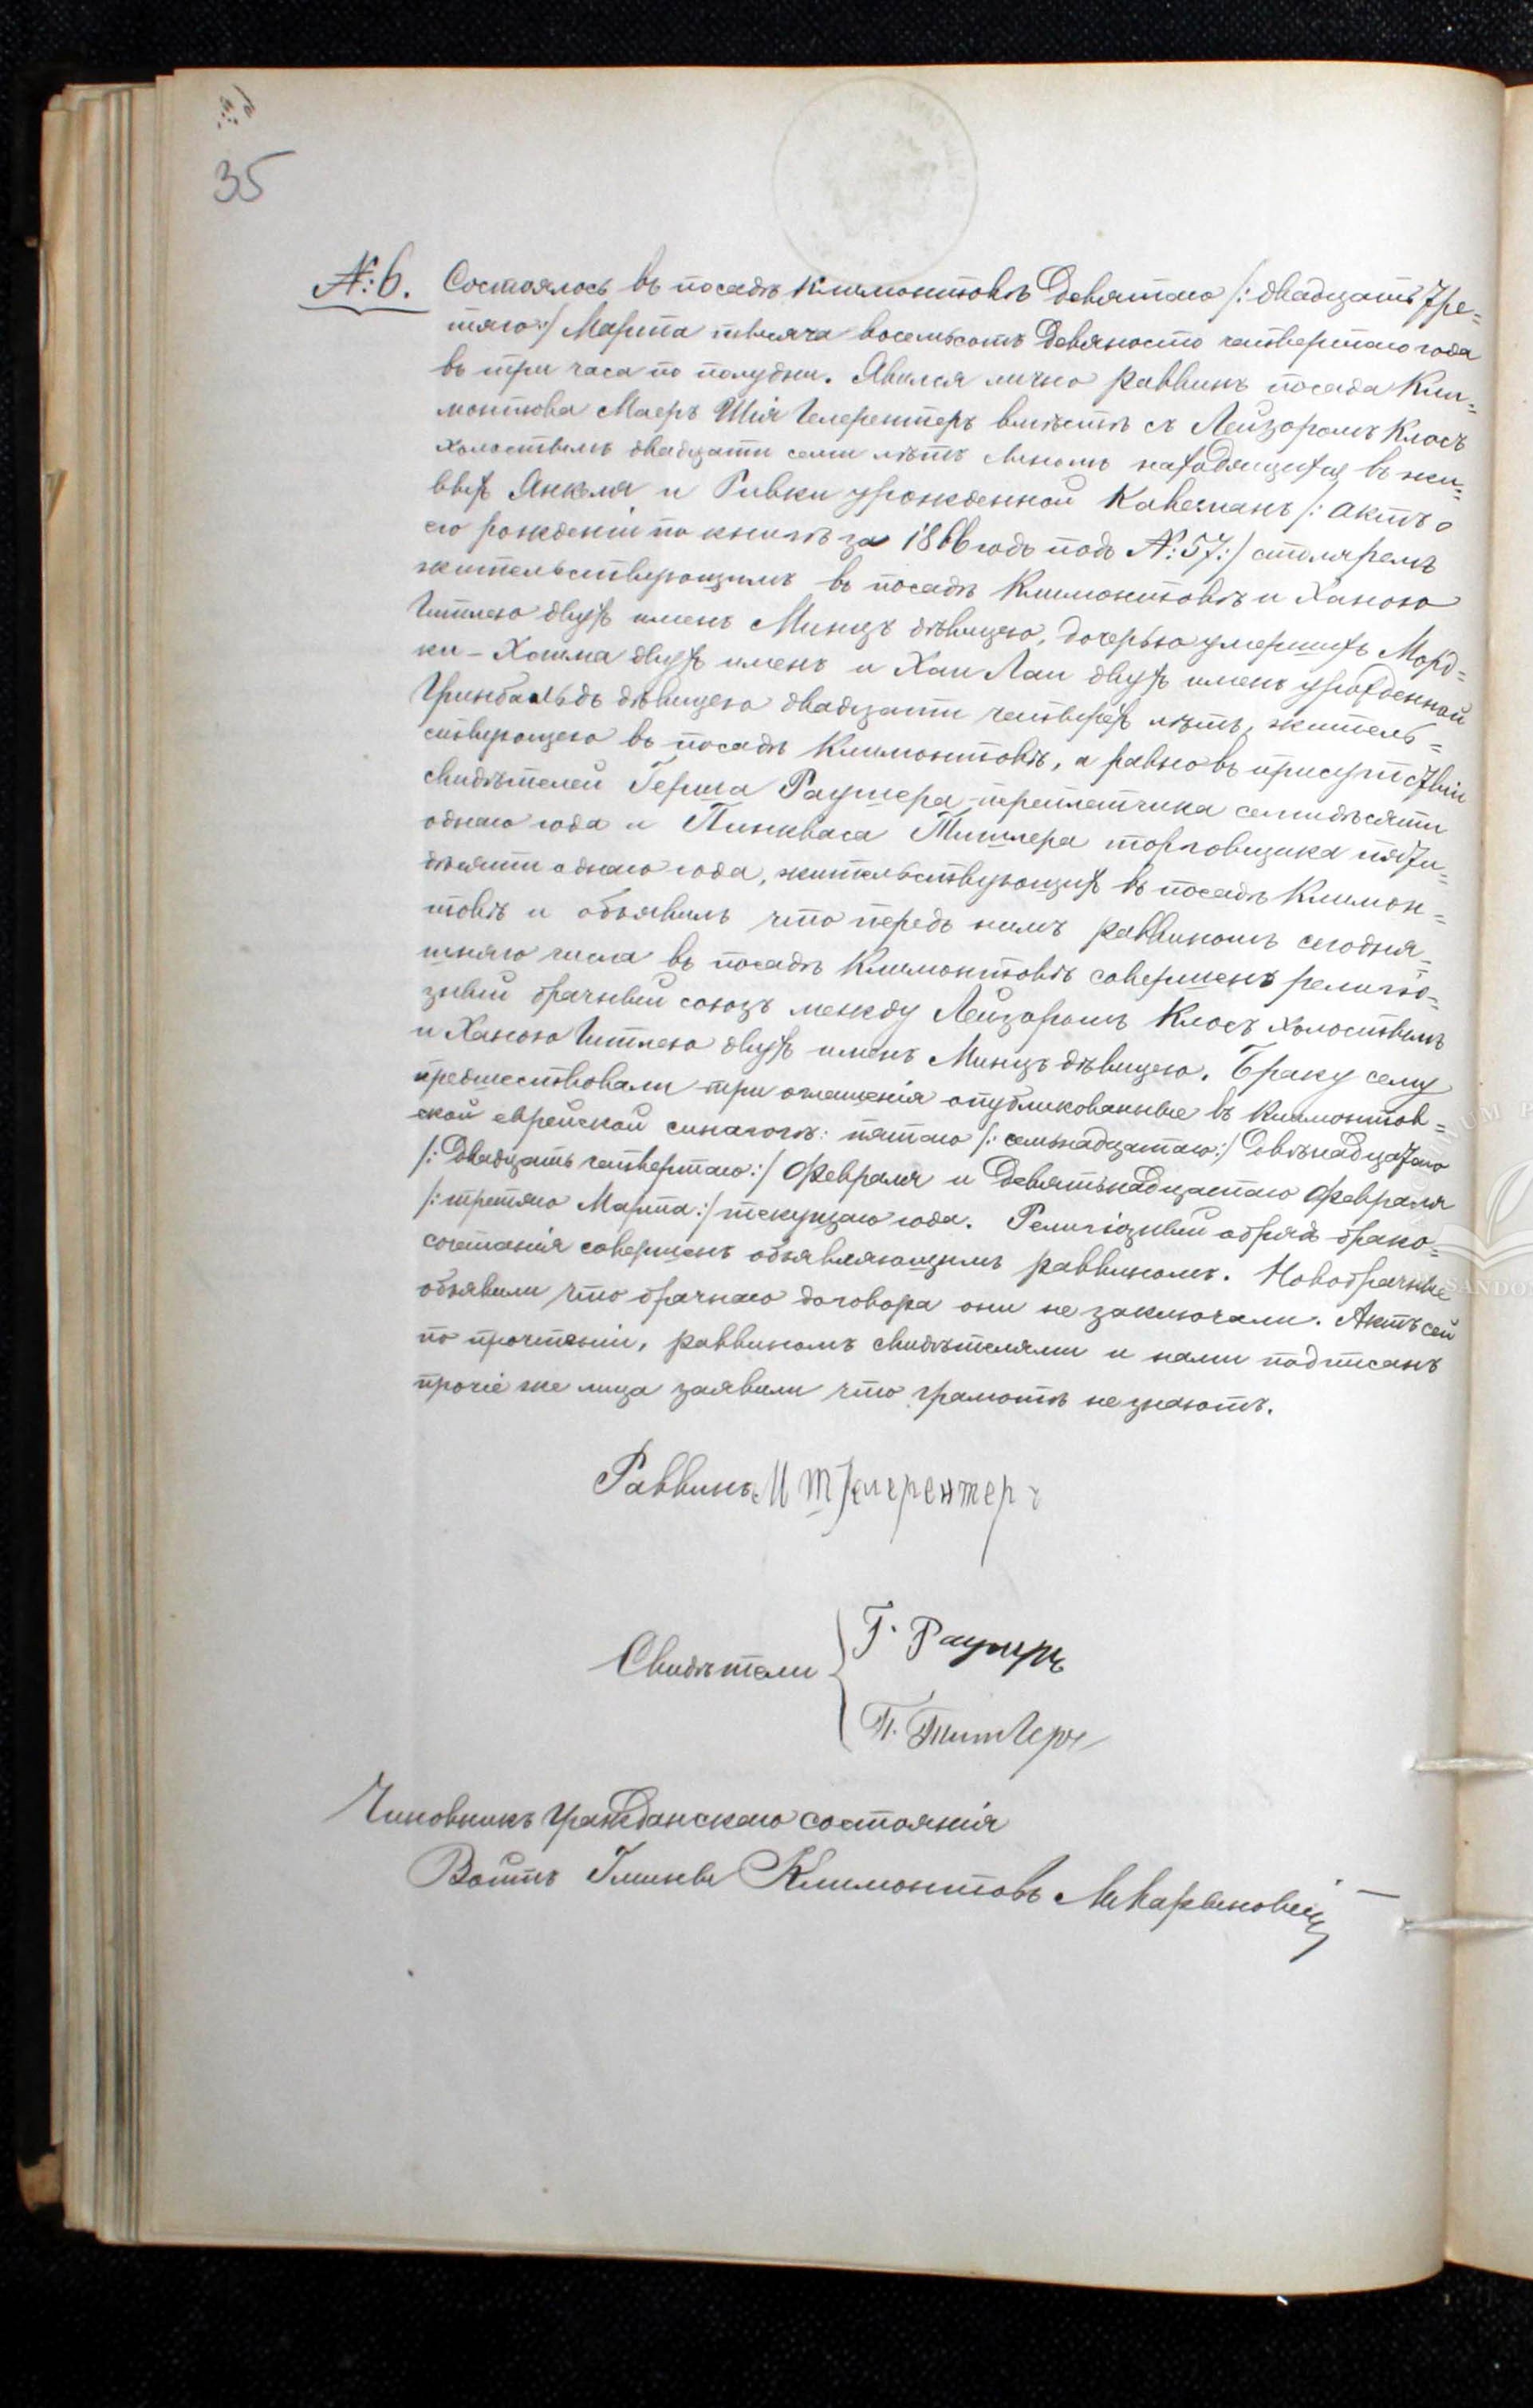 35
№: 6. Состоялось въ посадѣ Климонтовѣ Девятаго /: двадцать Тре=
тяго :/ Марта тысяча восемьсотъ Девяносто четвертаго года
въ три часа по полудни. Явился лично раввинъ посада Кли=
монтова Маеръ Шія Гелерентеръ вмѣстѣ съ Лейзоромъ Клосъ
холостымъ двадцати семи лѣтъ сыномъ находящихся въ жи=
выхъ Янкеля и Ривки урожденной Каверманъ /: актъ о
его рожденіи по книгѣ за 1866 годъ подъ №: 57 :/ столяремъ
жительствующимъ въ посадѣ Климонтовѣ и Ханою
Гитлею двухъ именъ Минцъ дѣвицею, дочерью умершихъ Морд=
ки-Хаима двухъ именъ и Хаи Лаи двухъ именъ урожденной
Гринбальдъ дѣвицею двадцати четырехъ лѣтъ, житель=
ствующею въ посадѣ Климонтовѣ, а равно въ присутствіи
свидѣтелей Герша Раушера переплетчика семидѣсяти
однаго года и Пинкваса Тишлера торговщика пяти=
дѣсяти однаго года, жительствующихъ въ посадѣ Климон=
товѣ и объявилъ что передъ нимъ раввиномъ сегодня=
шняго числа въ посадѣ Климонтовѣ совершенъ религіо=
зный брачный союзъ между Лейзоромъ Клосъ холостымъ
и Ханою Гитлею двухъ именъ Минцъ дѣвицею. Браку сему
предшествовали три оглашенія опубликованные въ Климонтов=
ской еврейской синагогѣ: пятаго /: семьнадцатаго :/ Двѣнадцатаго
/: Двадцать четвертаго :/ Февраля и Девятьнадцатаго Февраля
/: третяго Марта :/ текущаго года. Религіозный обрядъ брако=
сочетанія совершенъ объявляющимъ раввиномъ. Новобрачные
объявили что брачнаго договора они не заключали. Актъ сей
по прочтеніи, раввиномъ свидѣтелями и нами подписанъ
прочіе же лица заявили что грамотѣ не знаютъ.
Раввинъ М Ш Гелерентеръ
Свидѣтели
Г. Раушеръ
П. Тишлеръ
Чиновникъ Гражданскаго состоянія
Войтъ Гмины Климонтовъ